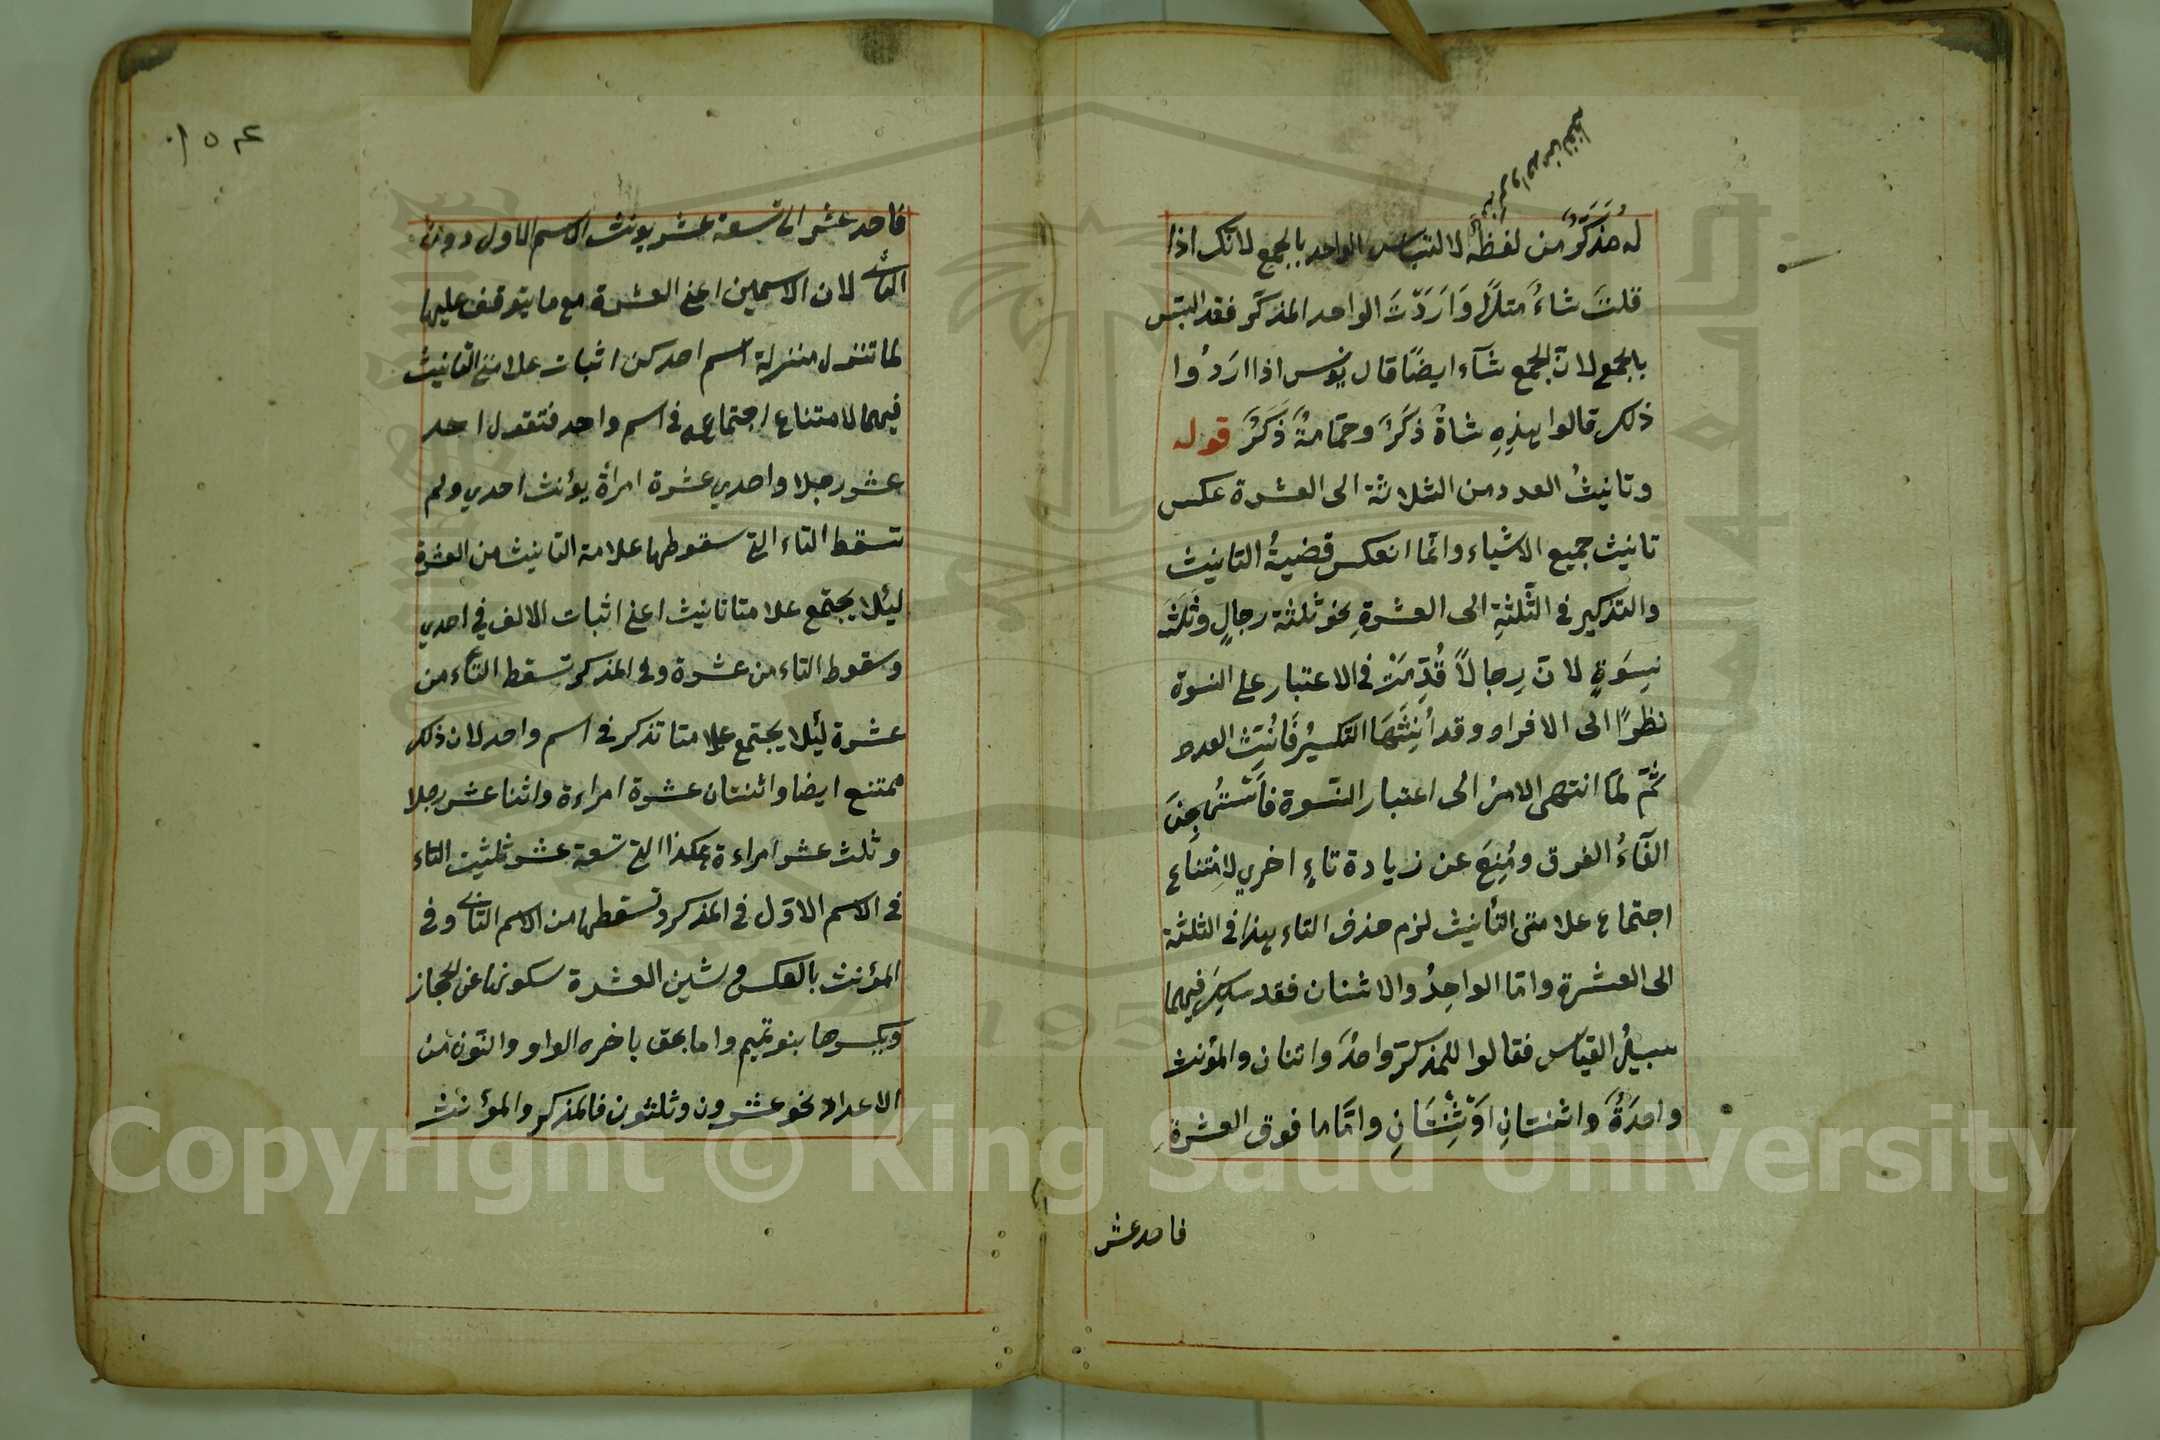 له مُذَكَّرٌ من لفظه لالتباس الواحد بالجمع لانك اذا
قلتَ شاءٌ مثلًا وَاَرَدْتَ الواحد المذكَّر فقد التبس
بالجمع لانّ الجمع شآء ايضًا قال يونس اذا ارَدُوا
ذلك قالوا هذِهِ شاةٌ ذَكَرٌ وحَمَامَةٌ ذَكَرٌ قوله
وتانيثُ العدد من الثلاثة الى العشرة عكس
تانيث جميع الاشياء وانّما انعكس قضيةُ التانيث
والتذكير فى الثّلثةِ الى العشرةِ نحو ثلثة رجالٍ وثَلَث
نِسِوَةٍ لانّ رِجالًا قُدِّمَتْ فى الاعتبار على النسوة
نظرًا الى الافراد وقد اُنِّثَهَا التكسيرُ فَاُنِّثَ العدد
ثُمّ لَمّا انتهى الامرُ الى اعتبار النّسوة فَاسْتُهْجِنَ
الغَآءُ الفرق ومُنِعَ عن زيادة تاءٍ اخري لامتناع
اجتماع علامتى التأنيث لزم حذف التاء هذا فى الثلثة
الى العشرة وامّا الواحِدُ والاثنان فقد سُلِكَ فيهما
سبيلُ القياس فقالوا للمذكرّ واحدٌ واثنان والمؤنث
واحدَةٌ واثنتانِ اوْ ثِنْتَانِ وامّا ما فوق العشرةِ
فاحد عشر
١٥٤
فاحد عشر الى تسعة عشر يونث الاسم الاول دون
الثانى لان الاسمين اعنى العشرة مع ما يتوقف عليها
لما تنزل منزلة اسم احد كن اثبات علامتى التانيث
فيهما لامتناع اجتماعه فى اسم واحد فتقول احد
عشر رجلا واحدي عشرة امرأة يؤنث احدي ولم
تسقط التاء التى سقوطها علامة التانيث من العشرة
ليئلا يجتمع علامتا تانيث اعنى اثبات الالف في احدي
وسقوط التاء من عشرة وفى المذكر تسقط التاء من
عشرة لئلا يجتمع علامتا تذكر فى اسم واحد لان ذلك
ممتنع ايضا واثنتان عشرة امراءة واثنا عشر رجلا
وثلث عشر امراءة هكذا الى تسعة عشر ثلثيت التاء
فى الاسم الاوّل فى المذكر وتسقطها من الاسم الثانى وفى
المؤنث بالعكس وشين العشرة سكونها عن الحجاز
ويكسرها بنو تميم واما بحق باخره الواو والنون من
الاعداد نحو عشرون وثلثون فالمذكر والمؤنث
Copyright © King Saud University